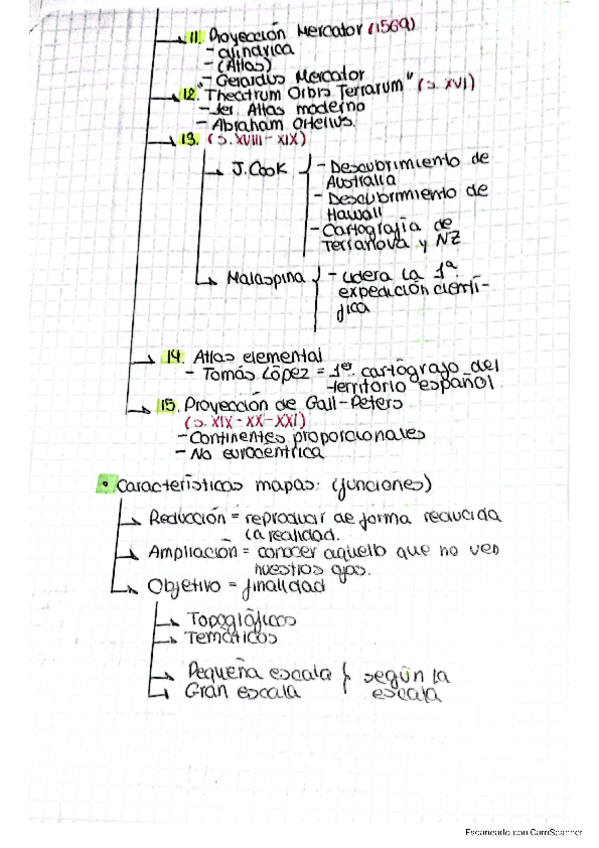 11. Proyección Mercator (1569)
- cilíndrica
- (Atlas)
- Gerardus Mercator
12. "Theatrum Orbis Terrarum" (s. XVI)
- 1er. Atlas moderno
- Abraham Ortelius.
13. (s. XVIII - XIX)
J. Cook
- Descubrimiento de
Australia
- Descubrimiento de
Hawaii
- Cartografía de
Terranova y NZ
Malaspina
- Lidera la 1ª
expedición cientí-
fica
14. Atlas elemental
- Tomás López = 1er. cartógrafo del
territorio español
15. Proyección de Gall-Peters
(s. XIX - XX - XXI)
- Continentes proporcionales
- No eurocéntrica
• Características mapas: (funciones)
Reducción = reproducir de forma reducida
la realidad.
Ampliación = conocer aquello que no ven
nuestros ojos.
Objetivo = finalidad
Topográficos
Temáticos
Pequeña escala } según la
Gran escala escala
Escaneado con CamScanner